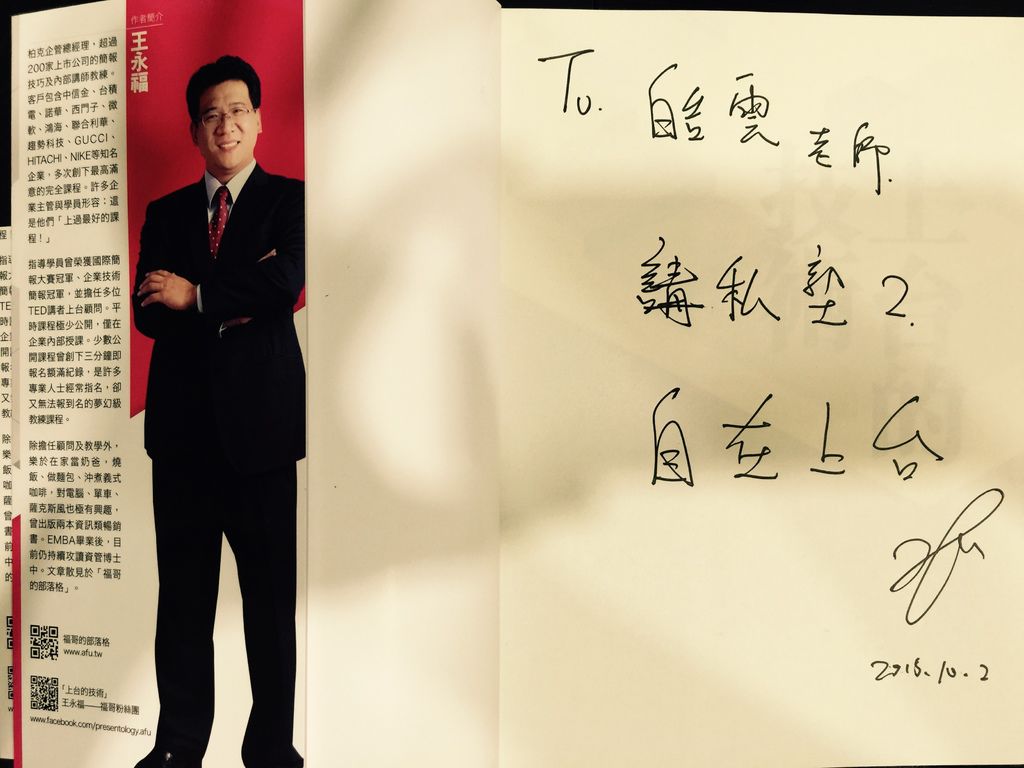 作者簡介
王永福
柏克企管總經理，超過
200家上市公司的簡報
技巧及內部講師教練。
客戶包含中信金、台積
電、諾華、西門子、微
軟、鴻海、聯合利華、
趨勢科技、GUCCI、
HITACHI、NIKE等知名
企業，多次創下最高滿
意的完全課程。許多企
業主管與學員形容：這
是他們「上過最好的課
程！」
指導學員曾榮獲國際簡
報大賽冠軍、企業技術
簡報冠軍，並擔任多位
TED講者上台顧問。平
時課程極少公開，僅在
企業內部授課。少數公
開課程曾創下三分鐘即
報名額滿紀錄，是許多
專業人士經常指名，卻
又無法報到名的夢幻級
教練課程。
除擔任顧問及教學外，
樂於在家當奶爸，燒
飯、做麵包、沖煮義式
咖啡，對電腦、單車、
薩克斯風也極有興趣，
曾出版兩本資訊類暢銷
書。EMBA畢業後，目
前仍持續攻讀資管博士
中。文章散見於「福哥
的部落格」。
福哥的部落格
www.afu.tw
「上台的技術」
王永福——福哥粉絲團
www.facebook.com/presentology.afu
To. 皓雲老師.
講私塾2.
自在上台
afu
2015.10.2